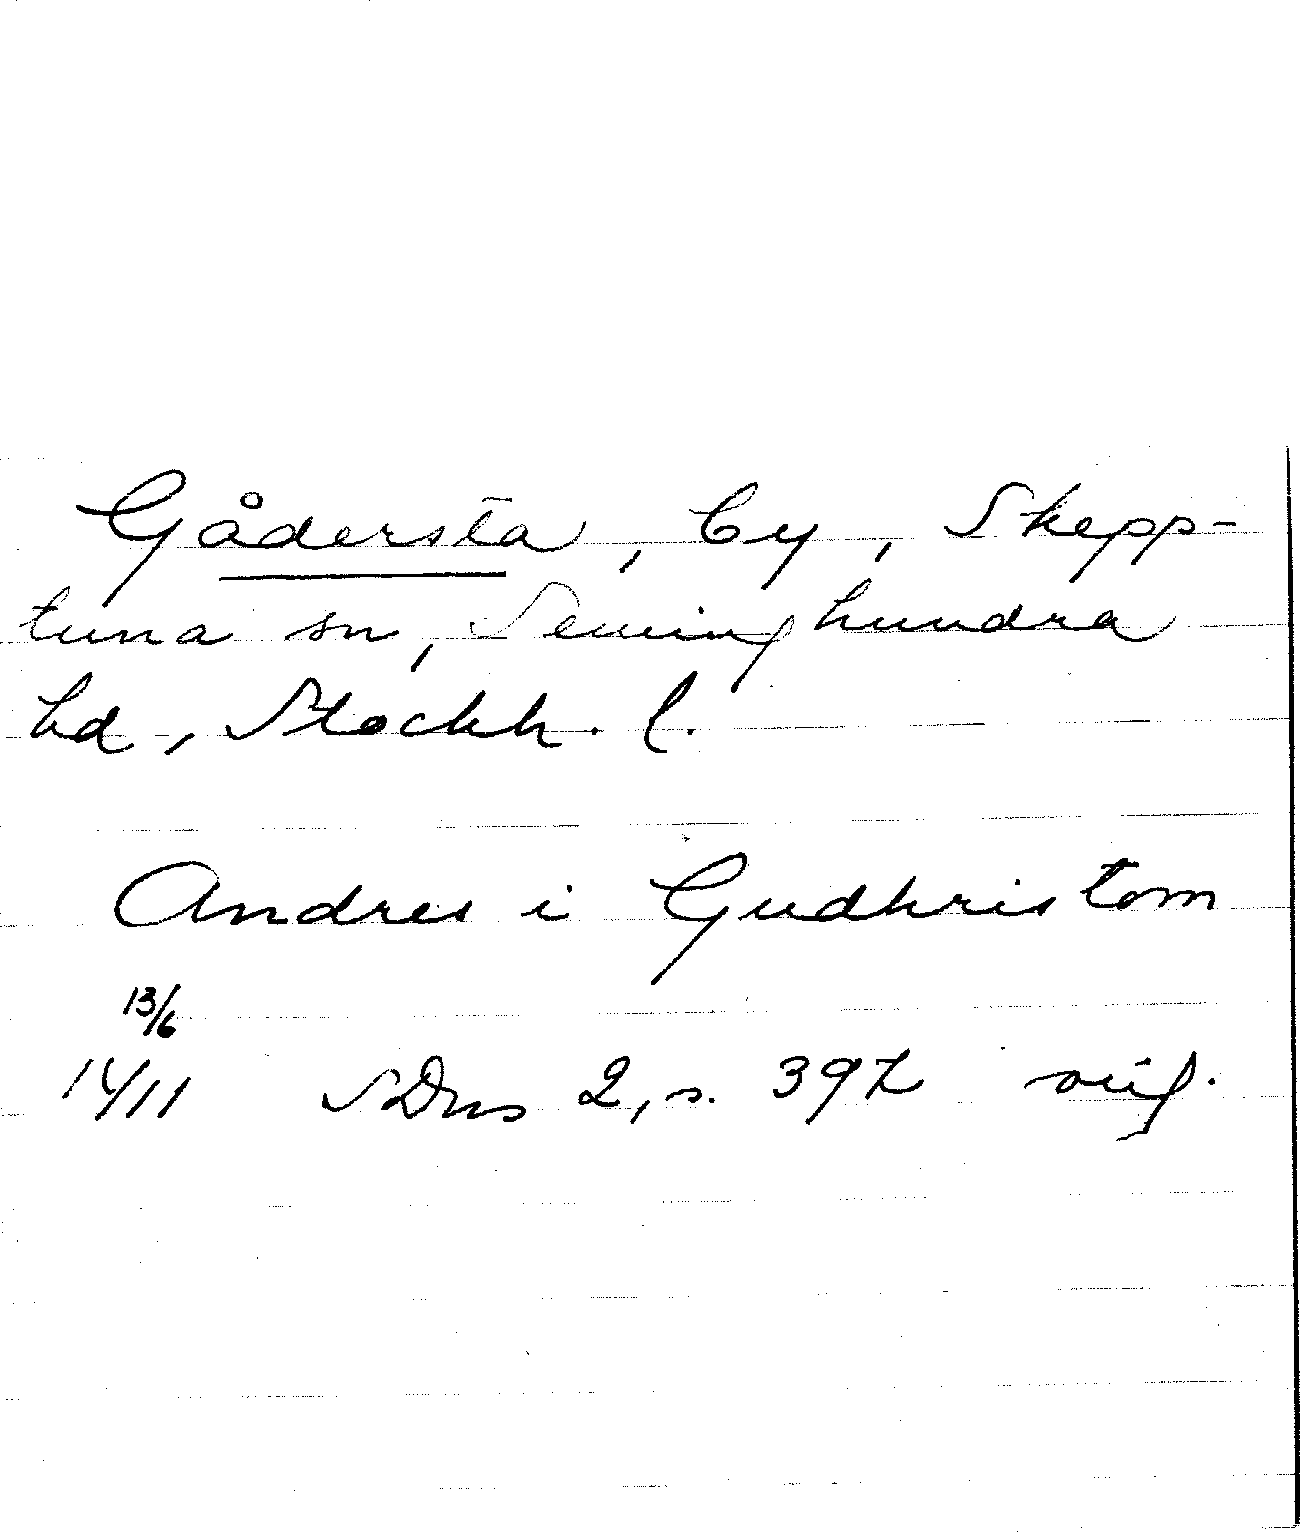 Gådersta, by, Skepp-
tuna sn, Seminghundra
hd, Stockh. l.
Andres i Gudhristom
13/6
14/11 SDns 2, s. 397 orig.